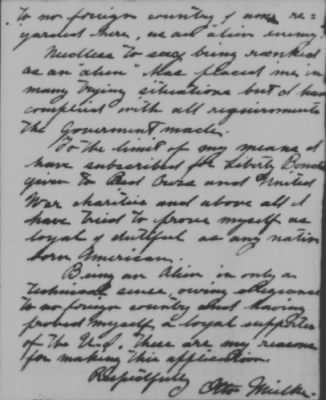 to no foreign country, I am re=
garded here, as an alien enemy.
Needless to say being ranked
as an alien has placed me in
many trying situations but I have
complied with all requirements
the Goverment made.
To the limit of my means I
have subscribed for Liberty Bonds
given to Red Cross and United
War charities and above all I
have tried to prove myself as
loyal & dutiful as any native
born American.
Being an Alien in only a
technical sense, owing allegiance
to no foreign country and having
proved myself a loyal supporter
of the U.S. these are my reasons
for making this application.
Respectfully
Otto Mielke.